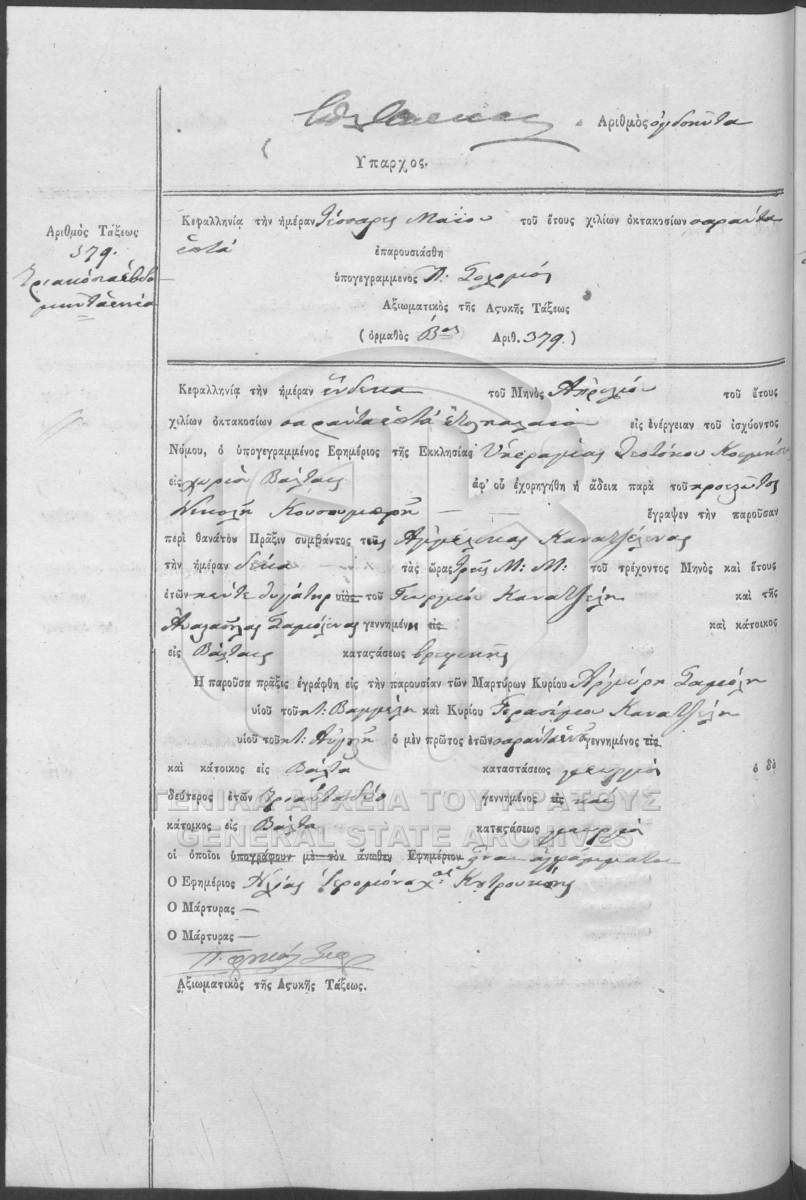 Αριθμὸς ὀγδοῆντα
Ύπαρχος.
Αριθμὸς Τάξεως
379.
Κεφαλληνία τὴν ἡμέραν τέσσαρες Μαΐου τοῦ ἔτους χιλίων ὀκτακοσίων σαράντα
ἑπτά
ἐπαρουσιάσθη
ὑπογεγραμμενος Π.
Αξιωματικὸς τῆς Αςυκῆς Τάξεως
(ὁρμαθὸς Βος Αριθ. 379.)
Κεφαλληνία τὴν ἡμέραν ἕνδεκα τοῦ Μηνὸς Ἀπριλίου τοῦ ἔτους
χιλίων ὀκτακοσίων σαράντα ἑπτά ἔτ. παλαιόν εἰς ἐνέργειαν τοῦ ἰσχύοντος
Νόμου, ὁ ὑπογεγραμμένος Εφημέριος τῆς Εκκλησίας Ὑπεραγίας Θεοτόκου
εἰς χωρίον Βάλταις ἀφ' οὗ ἐχορηγήθη ἡ ἄδεια παρὰ τοῦ προεστῶτος
Νικολῆ ἔγραψεν τὴν παροῦσαν
περὶ θανάτου Πρᾶξιν συμβάντος τῆς Αγγέλικας Καναντζέλενας
τὴν ἡμέραν δέκα τὰς ὥρας τρεῖς Μ: Μ: τοῦ τρέχοντος Μηνὸς καὶ ἔτους
ἐτῶν πέντε θυγάτηρ υἱὸς τοῦ Γεωργίου Καναντζέλη καὶ τῆς
γεννημένη εἰς καὶ κάτοικος
εἰς Βάλταις καταςάσεως βρεφικῆς
Η παροῦσα πρᾶξις ἐγράφθη εἰς τὴν παρουσίαν τῶν Μαρτύρων Κυρίου Αργύρη Σαμόλη
υἱοῦ τοῦ ποτ: καὶ Κυρίου Γερασίμου Καναντζέλη
υἱοῦ τοῦ ποτ: ὁ μὲν πρῶτος ἐτῶν σαράντα ἑνὸς γεννημένος εἰς
καὶ κάτοικος εἰς Βάλτα καταστάσεως γεωργὸς ὁ δὲ
δεύτερος ἐτῶν τριάντα δύο γεννημένος εἰς καὶ
κάτοικος εἰς Βάλτα καταςάσεως γεωργὸς
οἱ ὁποῖοι ὑπογράφουν μὲ τὸν ἄνωθεν Εφημέριον εἶναι ἀγράμματοι
Ο Εφημέριος Ηλίας Ἱερομόναχος
Ο Μάρτυρας —
Ο Μάρτυρας —
Αξιωματικὸς τῆς Αςυκῆς Τάξεως.
ΓΕΝΙΚΑ ΑΡΧΕΙΑ ΤΟΥ ΚΡΑΤΟΥΣ
GENERAL STATE ARCHIVES